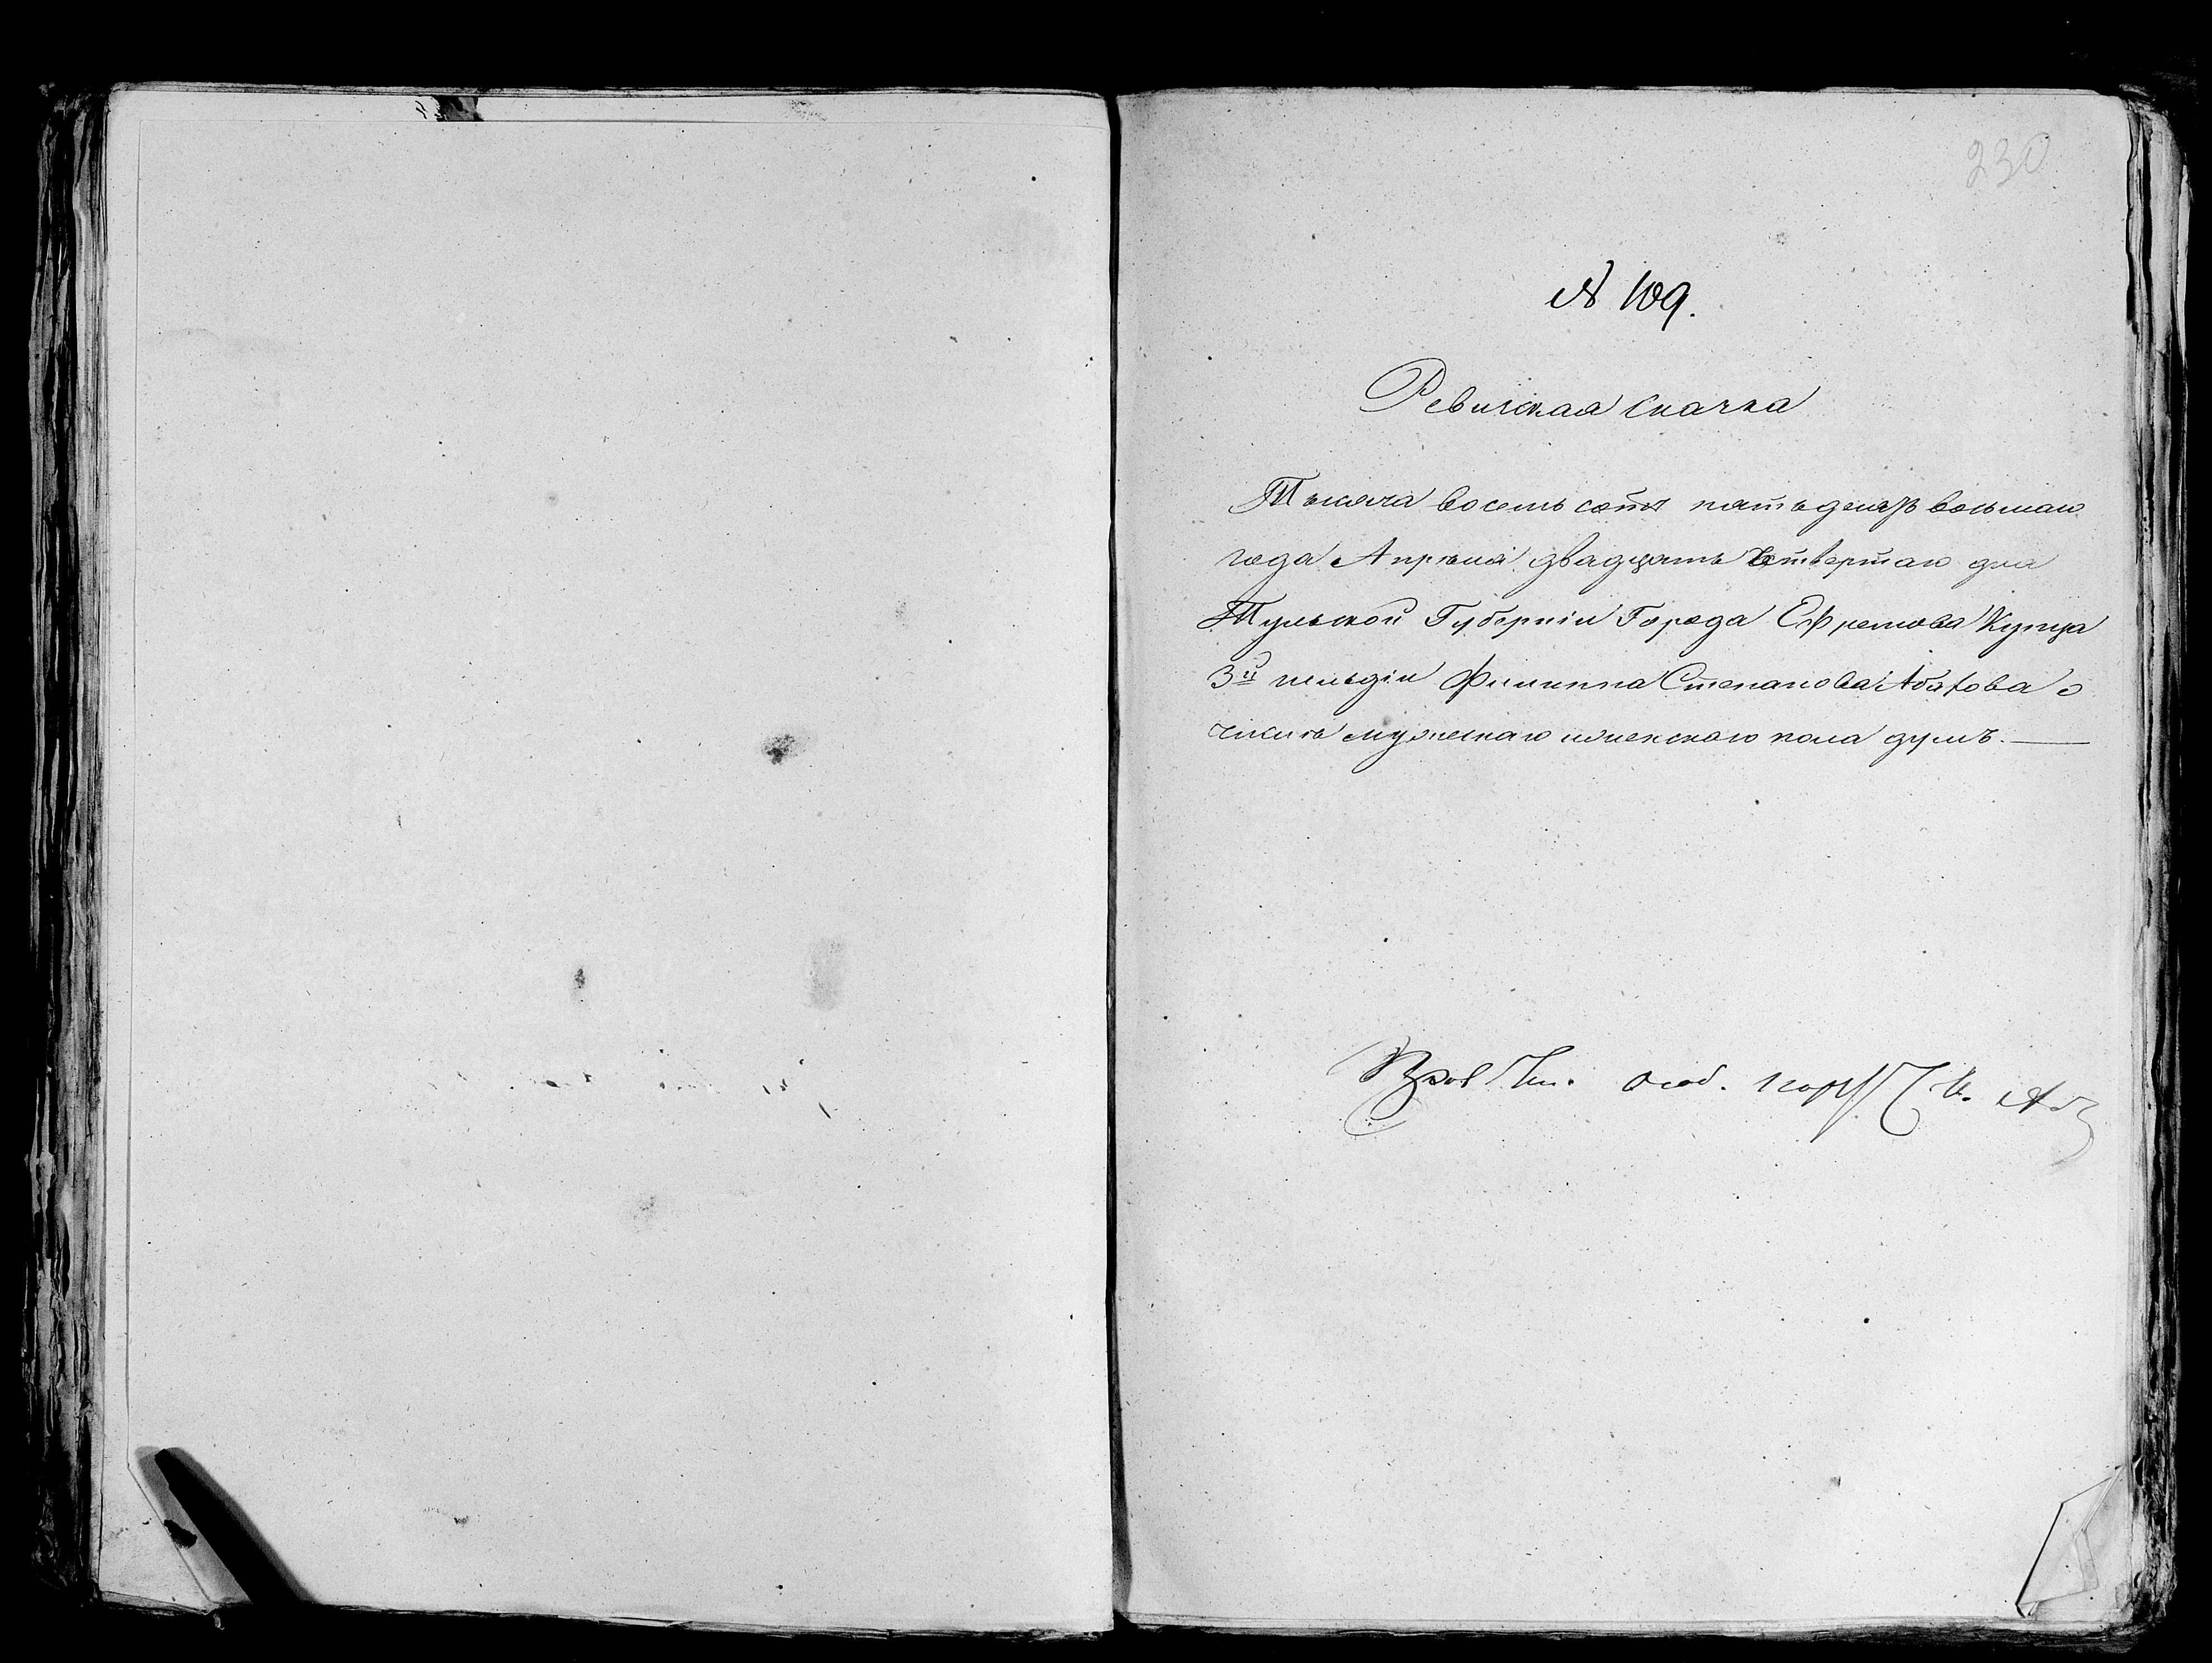 230
№ 109.
Ревизская Сказка
Тысяча восемь сотъ пятьдесятъ восьмаго
года Апрѣля двадцать Четвертаго дня
Тульской Губерніи Города Ефремова Купца
3й гильдіи Филиппа Степанова Абатова о
числѣ мужескаго и женскаго пола душъ.
Особ.